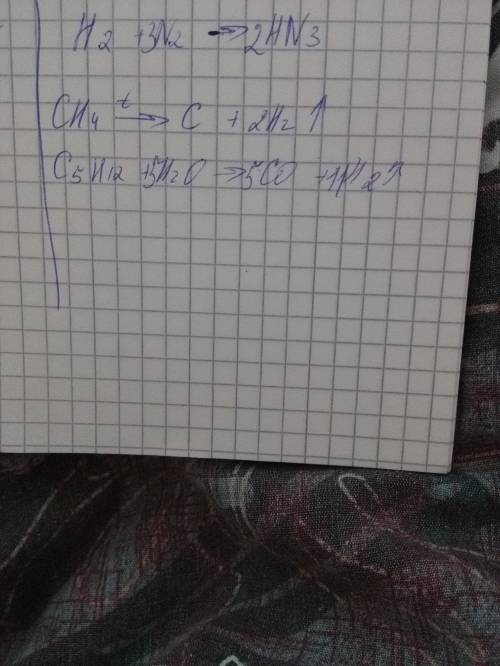 H2 +3N2 → 2HN3
CH4 t→ C + 2H2 ↑
C5H12 +5H2O → 5CO +11H2↑